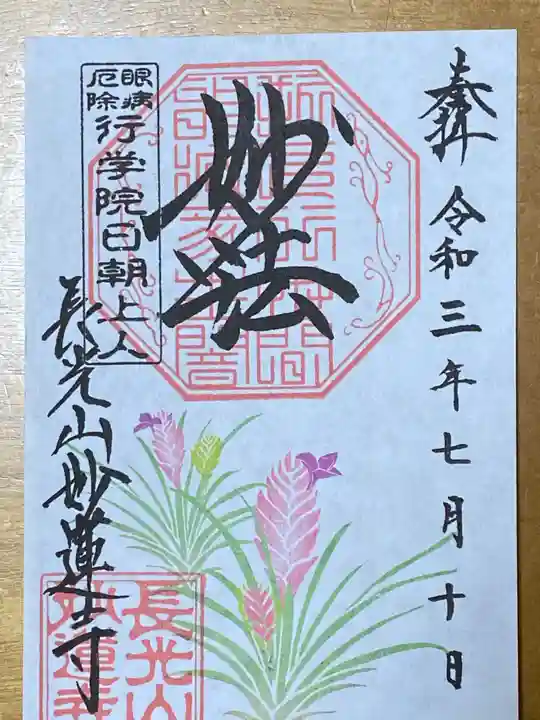 奉拝 令和三年七月十日
妙法
眼病
厄除
行学院日朝上人
長光山妙蓮寺
長光山
妙蓮寺